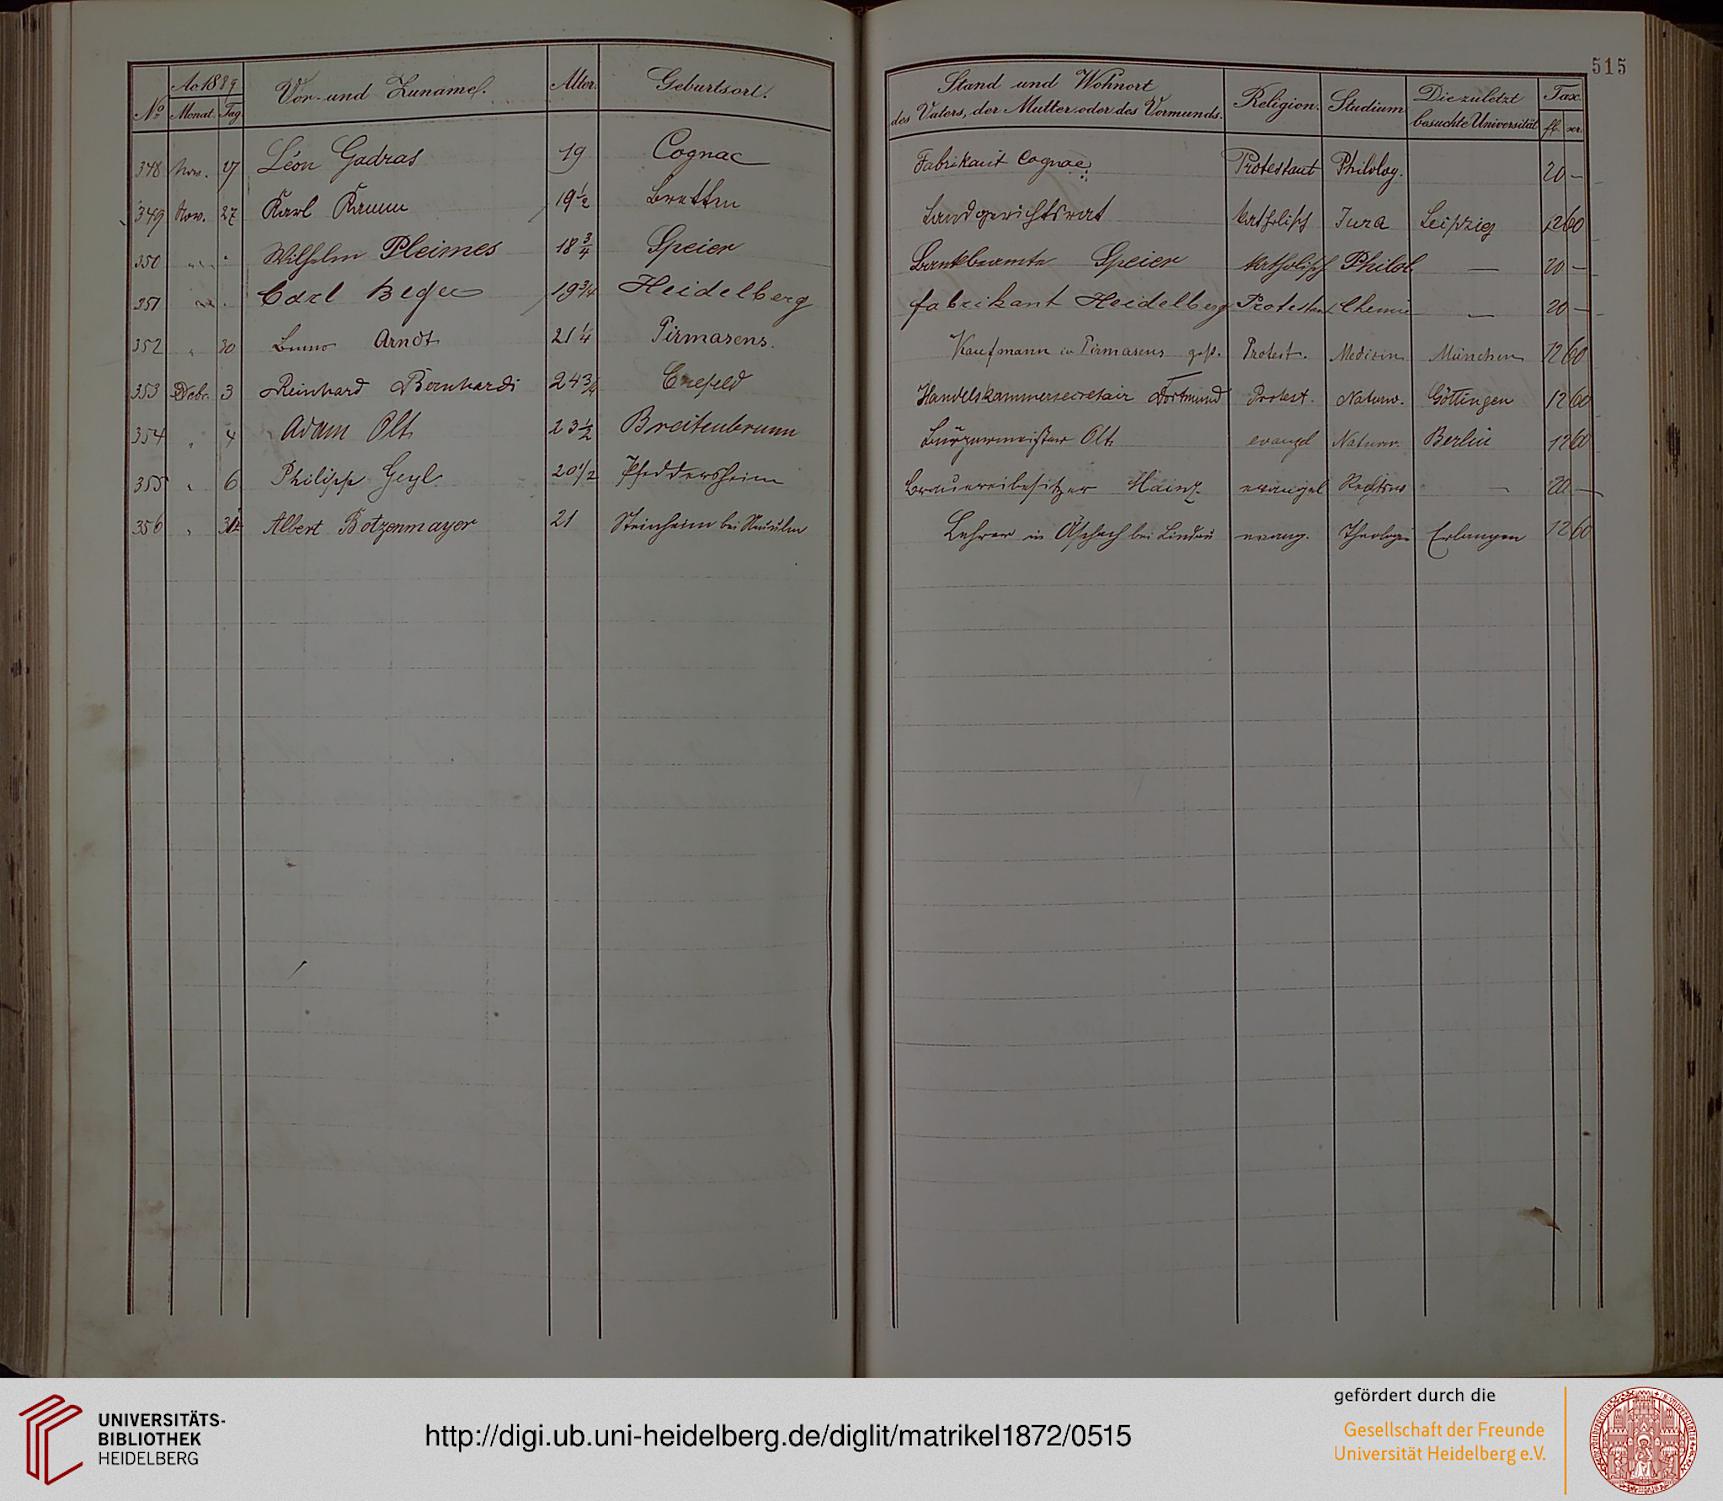 515
Ao 1889
No Monat. Tag Vor- und Zuname. Alter. Geburtsort. Stand und Wohnort des Vaters, der Mutter oder des Vormunds. Religion. Studium Die zuletzt besuchte Universität Tax. fl. xr.
348 Nov. 27 Léon Gadras 19 Cognac Fabrikant Cognac Protestant Philolog. 20 —
349 Nov. 27 Karl 19 1/2 Bretten Landgerichtsrat katholisch Jura Leipzig 12 60
350 " " Wilhelm Pleimes 18 3/4 Speier Bankbeamte Speier katholisch Philol — 20 —
351 " " Carl 19 3/4 Heidelberg Fabrikant Heidelberg Protestant Chemie — 20 —
352 " 30 Bruno Arndt 21 1/4 Pirmasens. Kaufmann in Pirmasens Protest. Medicin München 12 60
353 Debr. 3 Reinhard Bernhardi 24 3/4 Crefeld Handelskammersecretair Dortmund Protest. Naturw. Göttingen 12 60
354 " 4 Adam Olt 23 1/2 Breitenbrunn Bürgermeister Olt evangel Naturw. Berlin 12 60
355 " 6 Philipp Geyl 20 1/2 Pfeddersheim Brauereibesitzer Mainz evangel Rechtsw — 20 —
356 " Albert Botzenmayer 21 Steinheim bei Neuulm Lehrer in Äschach bei Lindau evang. Theologie Erlangen 12 60
UNIVERSITÄTS-
BIBLIOTHEK
HEIDELBERG
http://digi.ub.uni-heidelberg.de/diglit/matrikel1872/0515
gefördert durch die
Gesellschaft der Freunde
Universität Heidelberg e.V.